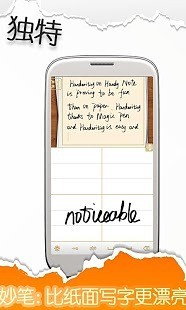 独特
Handwriting on Handy Note
is proving to be fun
than on paper. Handwriting
thanks to Magic pen
and Handwriting is easy and
noticeable
妙笔: 比纸面写字更漂亮